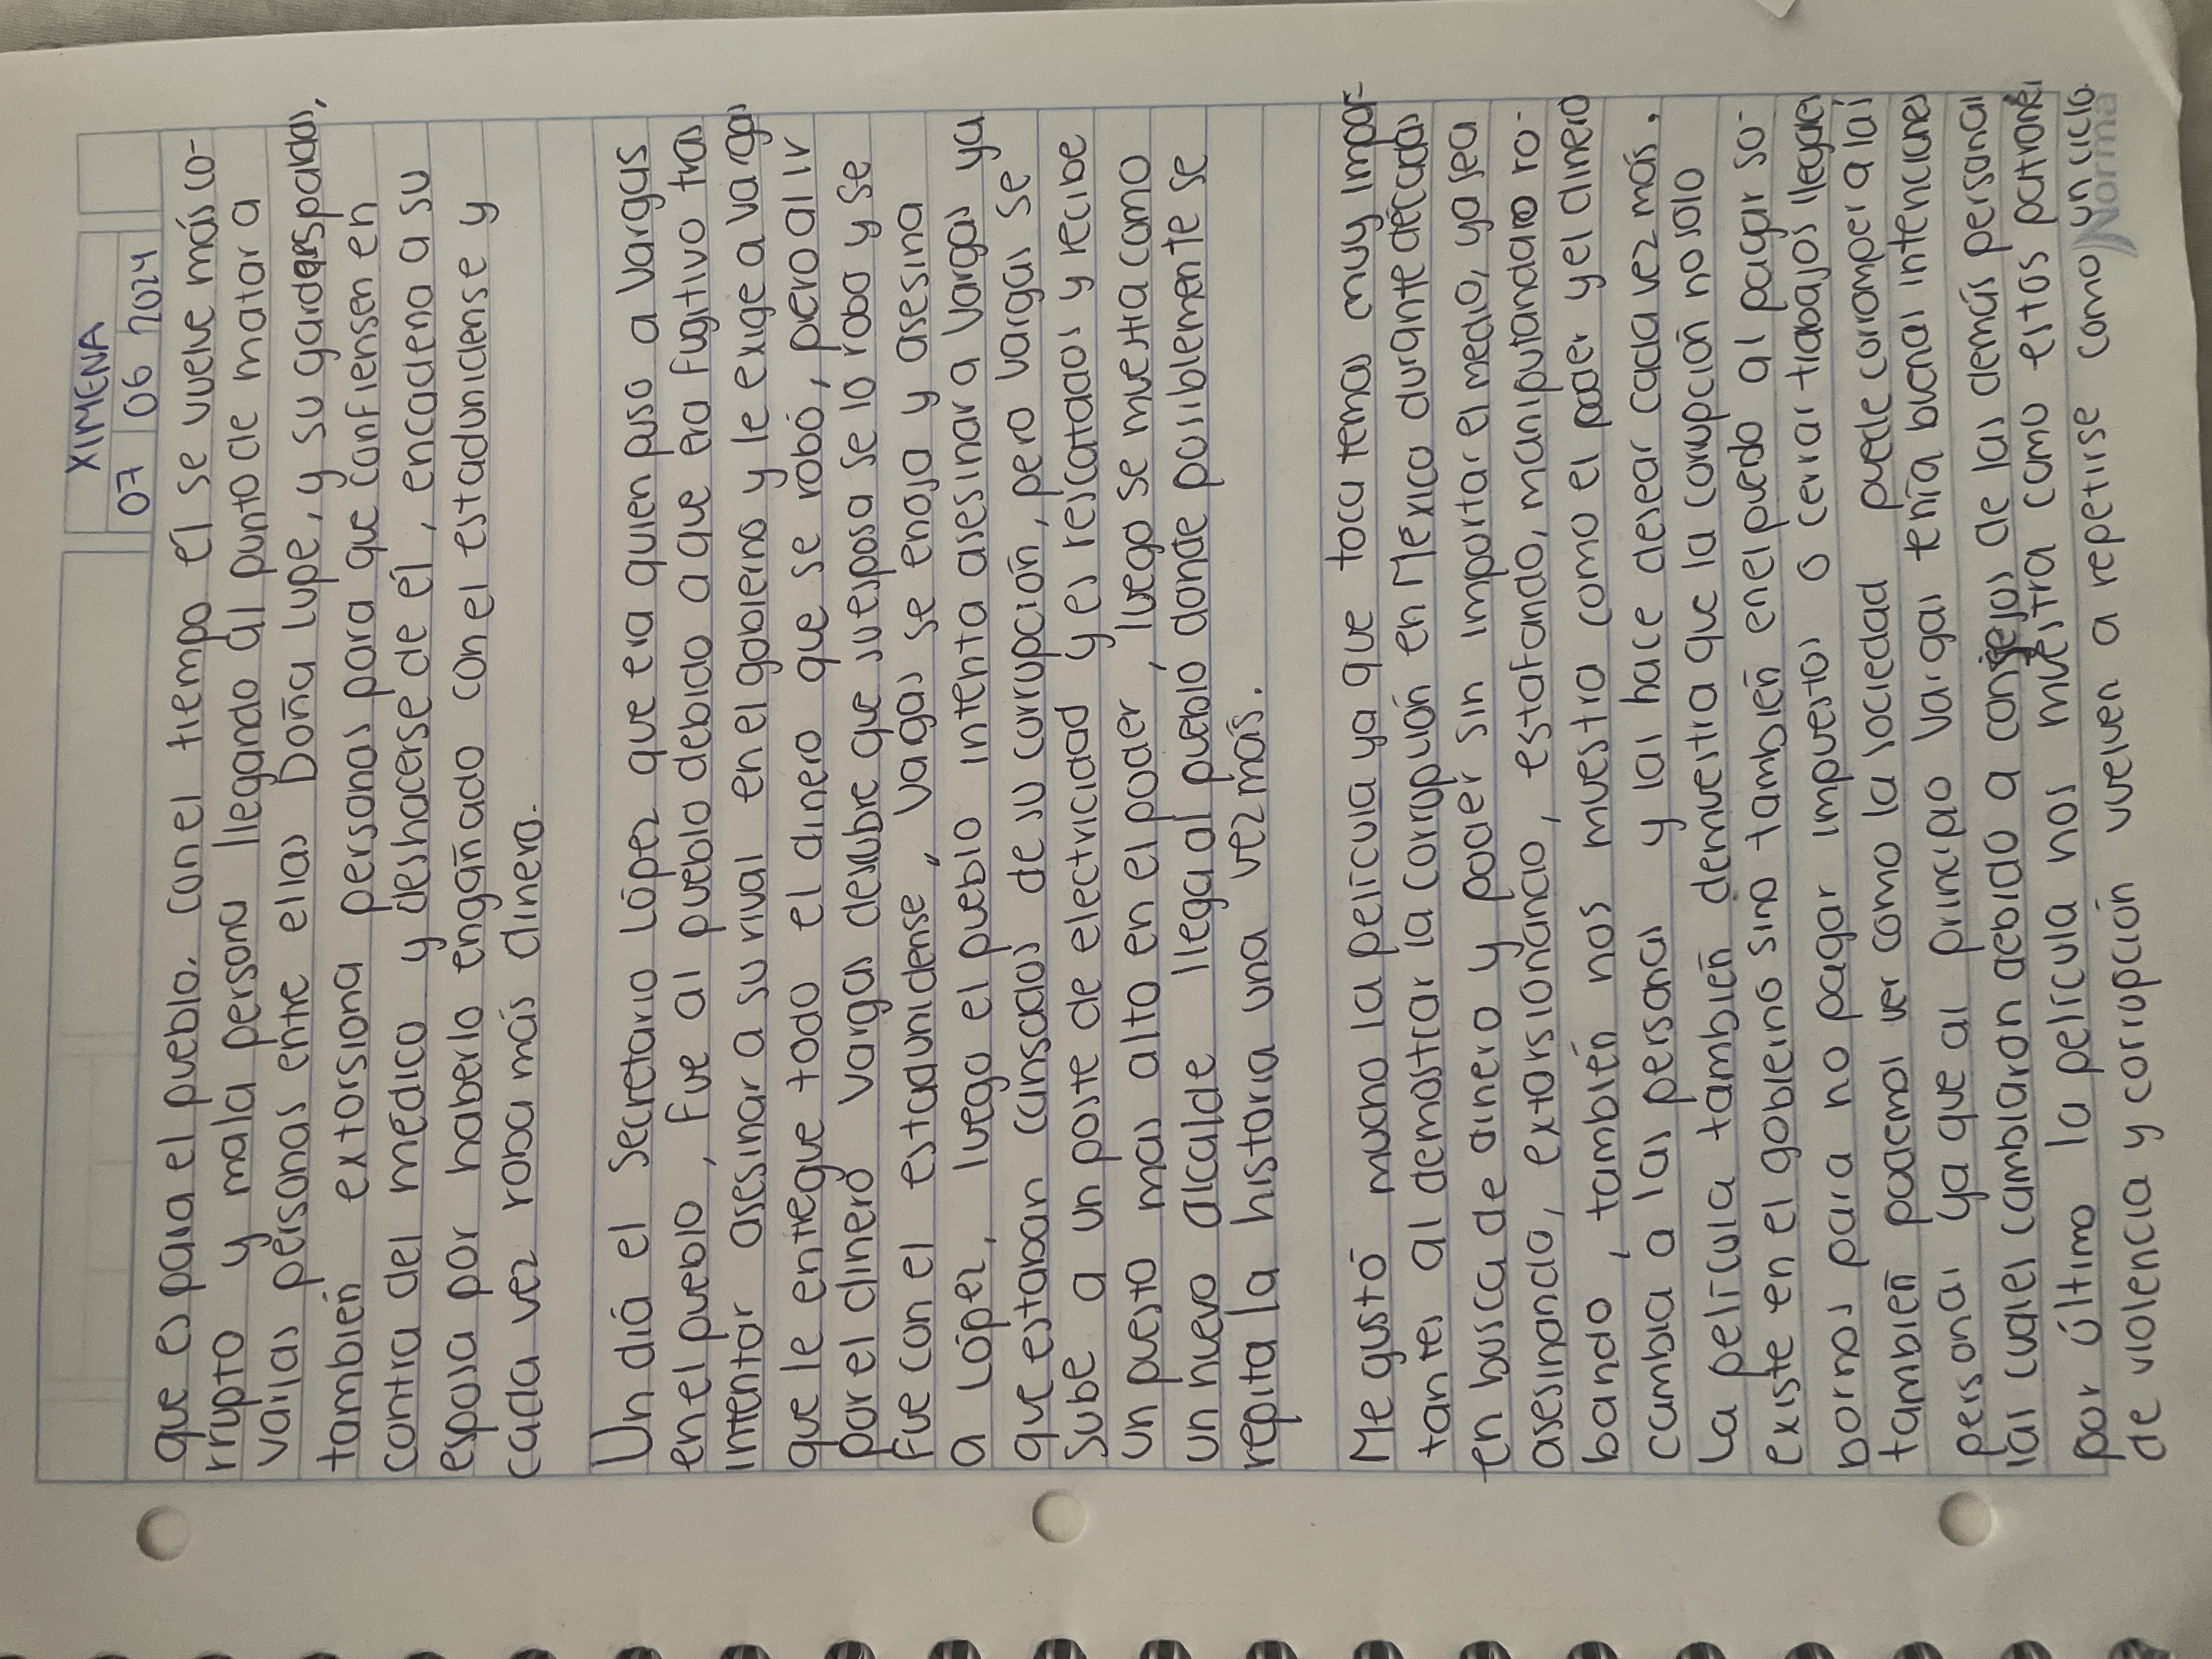 XIMENA
07 06 2024
que es para el pueblo. con el tiempo él se vuelve más co-
rrupto y mala persona llegando al punto de matar a
varias personas entre ellas Doña Lupe, y su gardespaldas,
también extorsiona personas para que confiensen en
contra del médico y deshacerse de él, encadena a su
esposa por haberlo engañado con el estaduniense y
cada vez roba más dinero.
Un diá el Secretario López que era quien puso a Vargas
en el pueblo, fue al pueblo debido a que era fugitivo tras
intentar asesinar a su rival en el gobierno y le exige a vargas
que le entregue todo el dinero que se robó, pero al ir
por el dinero vargas desubre que su esposa se lo robo y se
fue con el estadunidense, vagas se enoja y asesina
a López, luego el pueblo intenta asesinar a Vargas ya
que estaban cansados de su corrupción, pero vargas se
sube a un poste de electricidad y es rescatado y recibe
un puesto mas alto en el poder, luego se muestra como
un nuevo alcalde llega al pueblo donde posiblemente se
repita la historia una vez más.
Me gustó mucho la película ya que toca temas muy impor-
tantes al demostrar la corrupción en México durante décadas
en busca de dinero y poder sin importar el medio, ya sea
asesinando, extorsionando, estafando, maniputandoro ro-
bando, también nos muestra como el poder y el dinero
cambia a las personas y las hace desear cada vez más.
La película también demuestra que la corrupción no solo
existe en el gobierno sino también en el puedo al pagar so-
bornos para no pagar impuestos o cerrar trabajos ilegales
también podemos ver como la sociedad puede corromper a las
personas ya que al principio Vargas tenía buenas intenciones
las cuales cambiaron debido a consejos de las demás personas
por último la película nos muestra como estos patrones
de violencia y corrupción vuelven a repetirse como un ciclo.
Norma